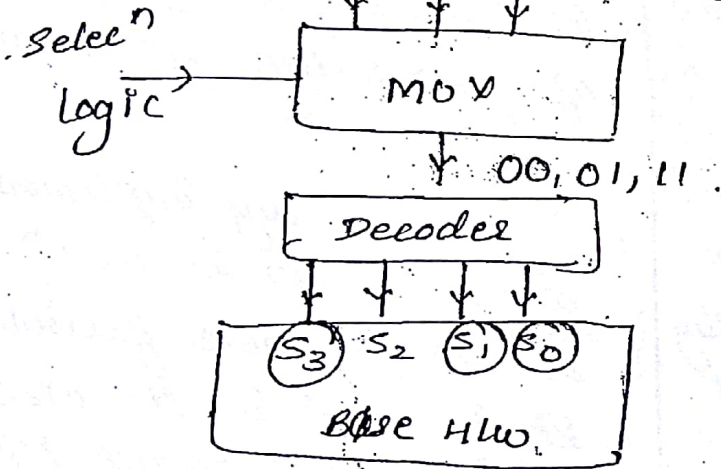 Selecⁿ
Logic
MUX
00, 01, 11
Decoder
S3 S2 S1 S0
Base H/w.